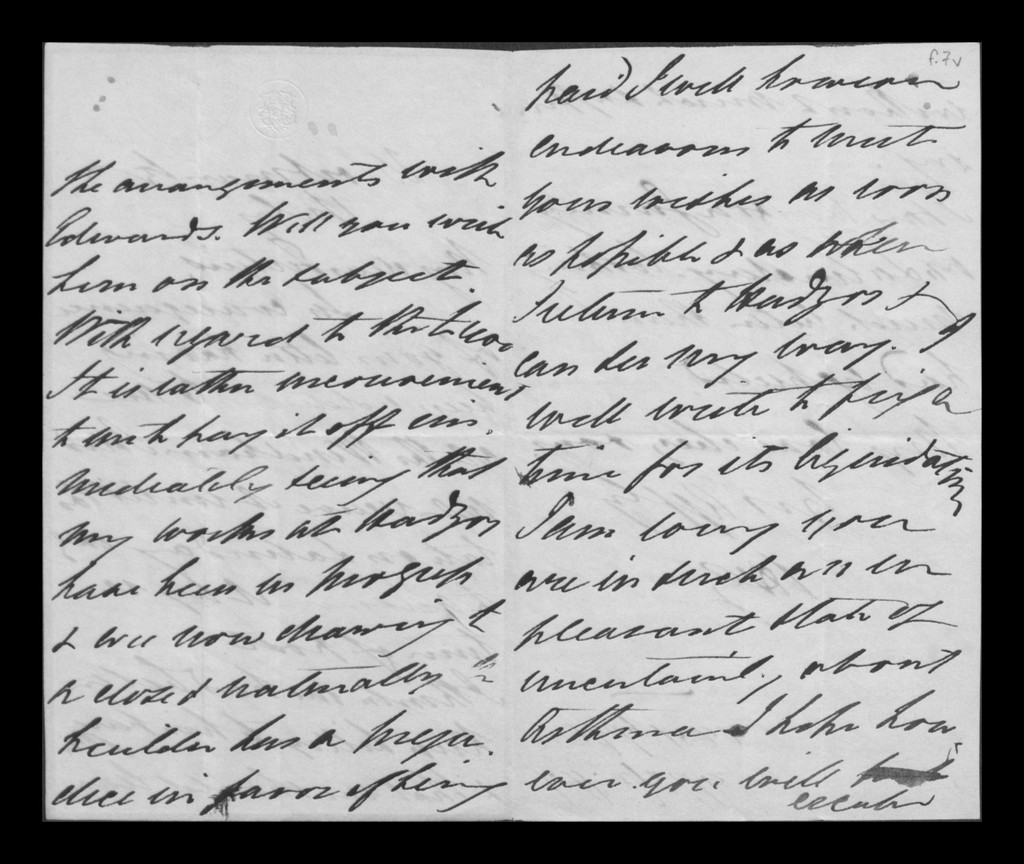 the arrangements with
Edwards. Will you write
him on the subject.
With regard to the £1000
It is rather inconvenient
to me to pay it off im-
mediately seeing that
my works at Hadzor
have been in progress
& are now drawing to
a close & naturally the
builder has a preju-
dice in favor of being
f.7v
paid) I will however
endeavour to meet
your wishes as soon
as possible & as when
I return to Hadzor &
can see my way. I
will write to fix a
time for its liquidation
I am sorry you
are in such an un
pleasant state of
uncertainty about
Asthma I hope how-
ever you will